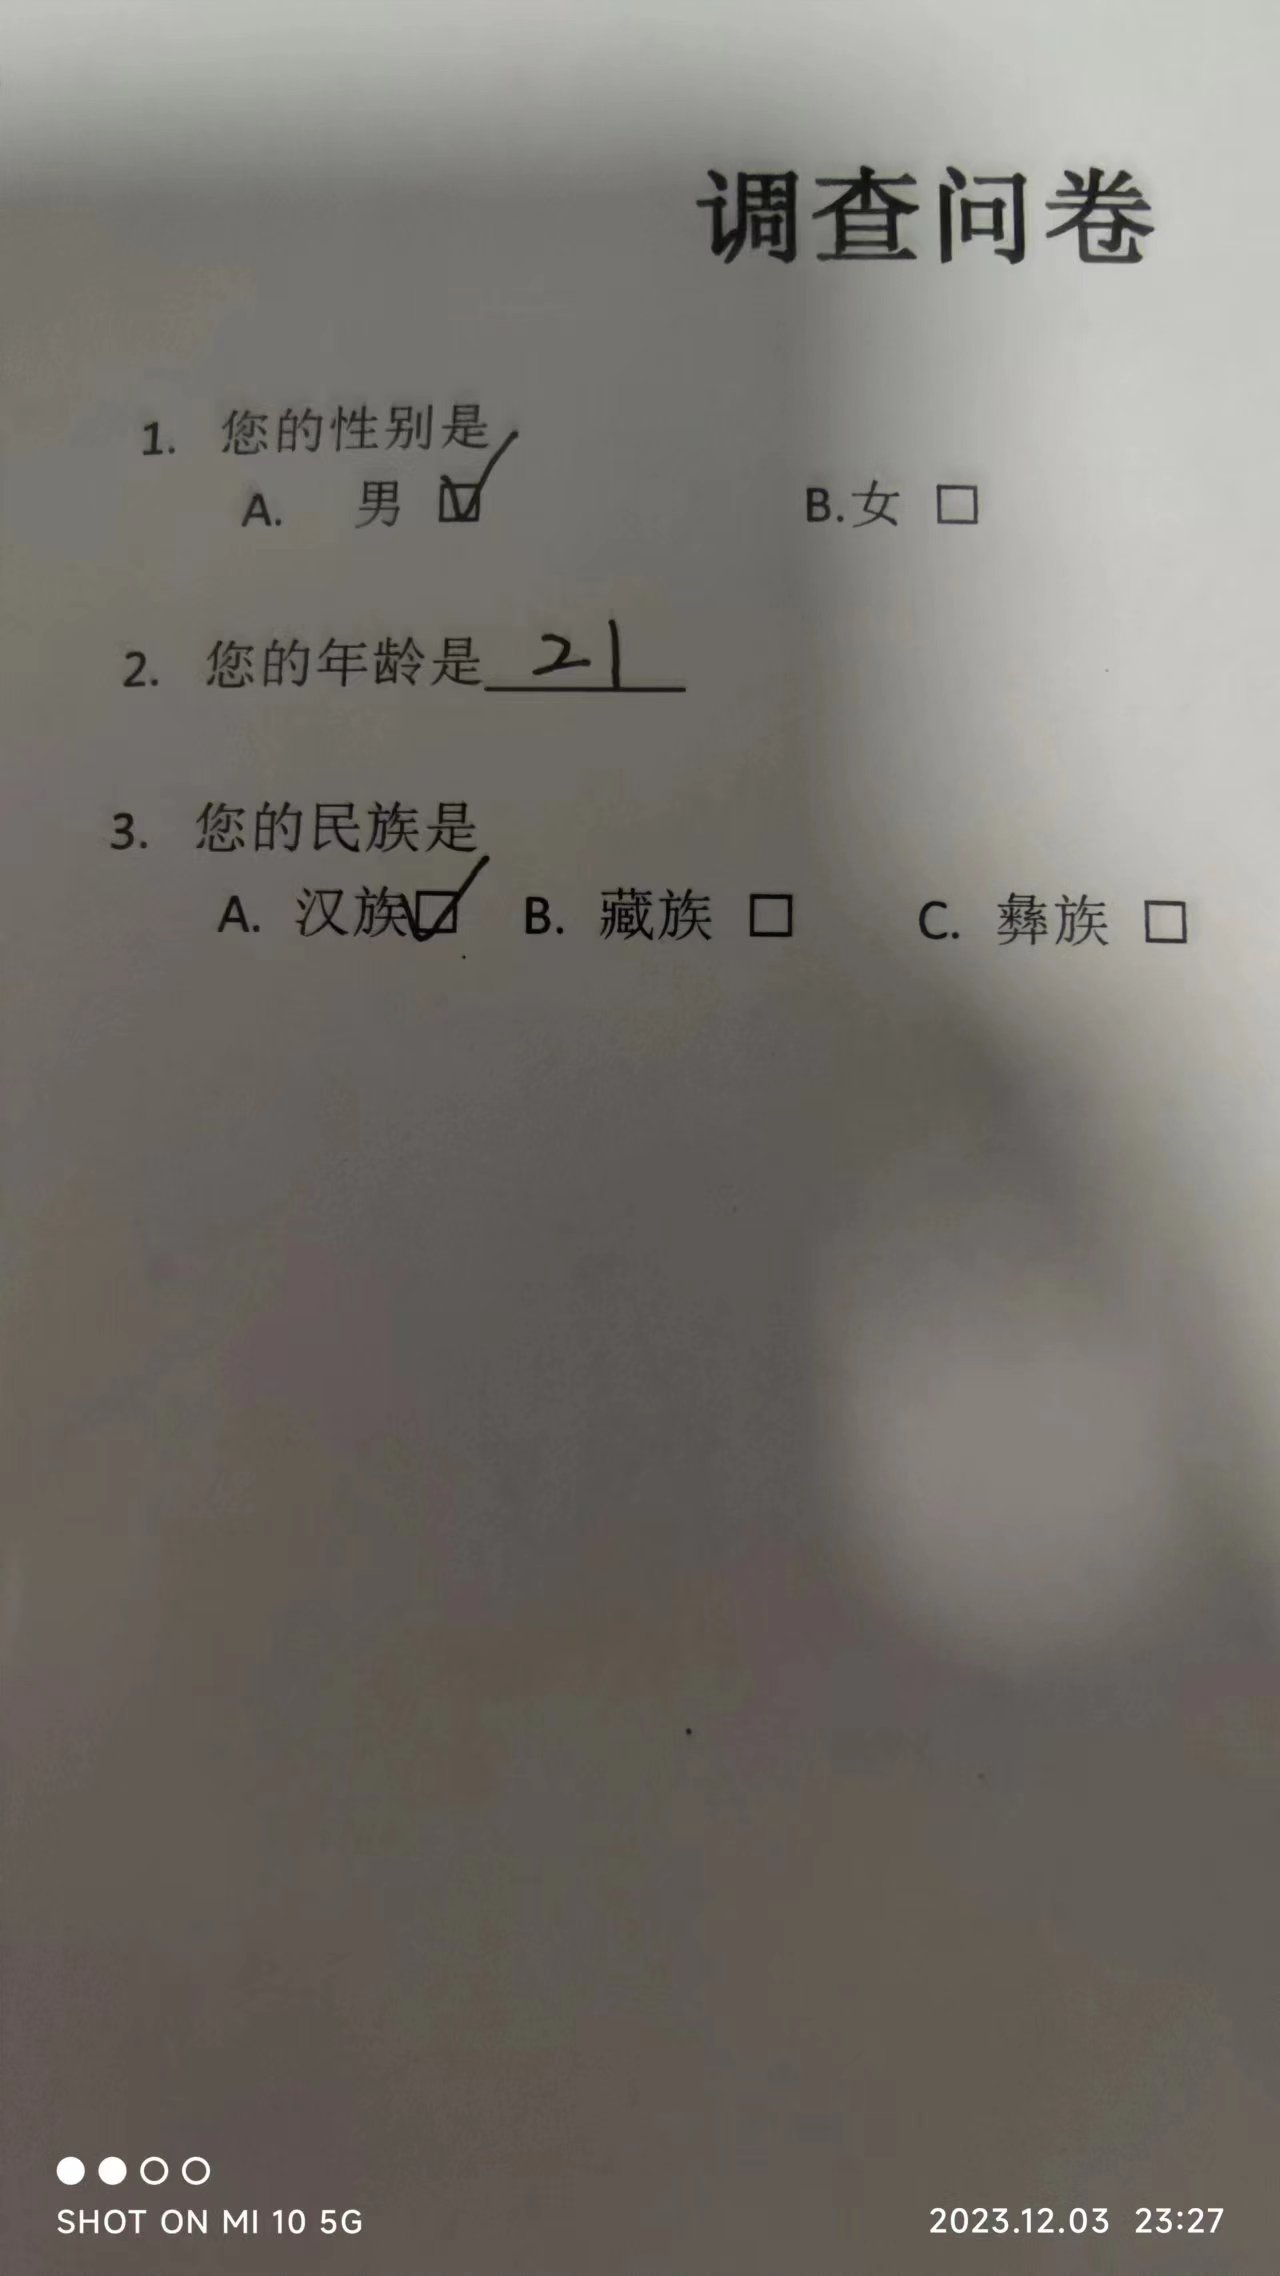 调查问卷
1. 您的性别是
A. 男 ☑ B.女 □
2. 您的年龄是 21
3. 您的民族是
A. 汉族 ☑ B. 藏族 □ C. 彝族 □
SHOT ON MI 10 5G 2023.12.03 23:27